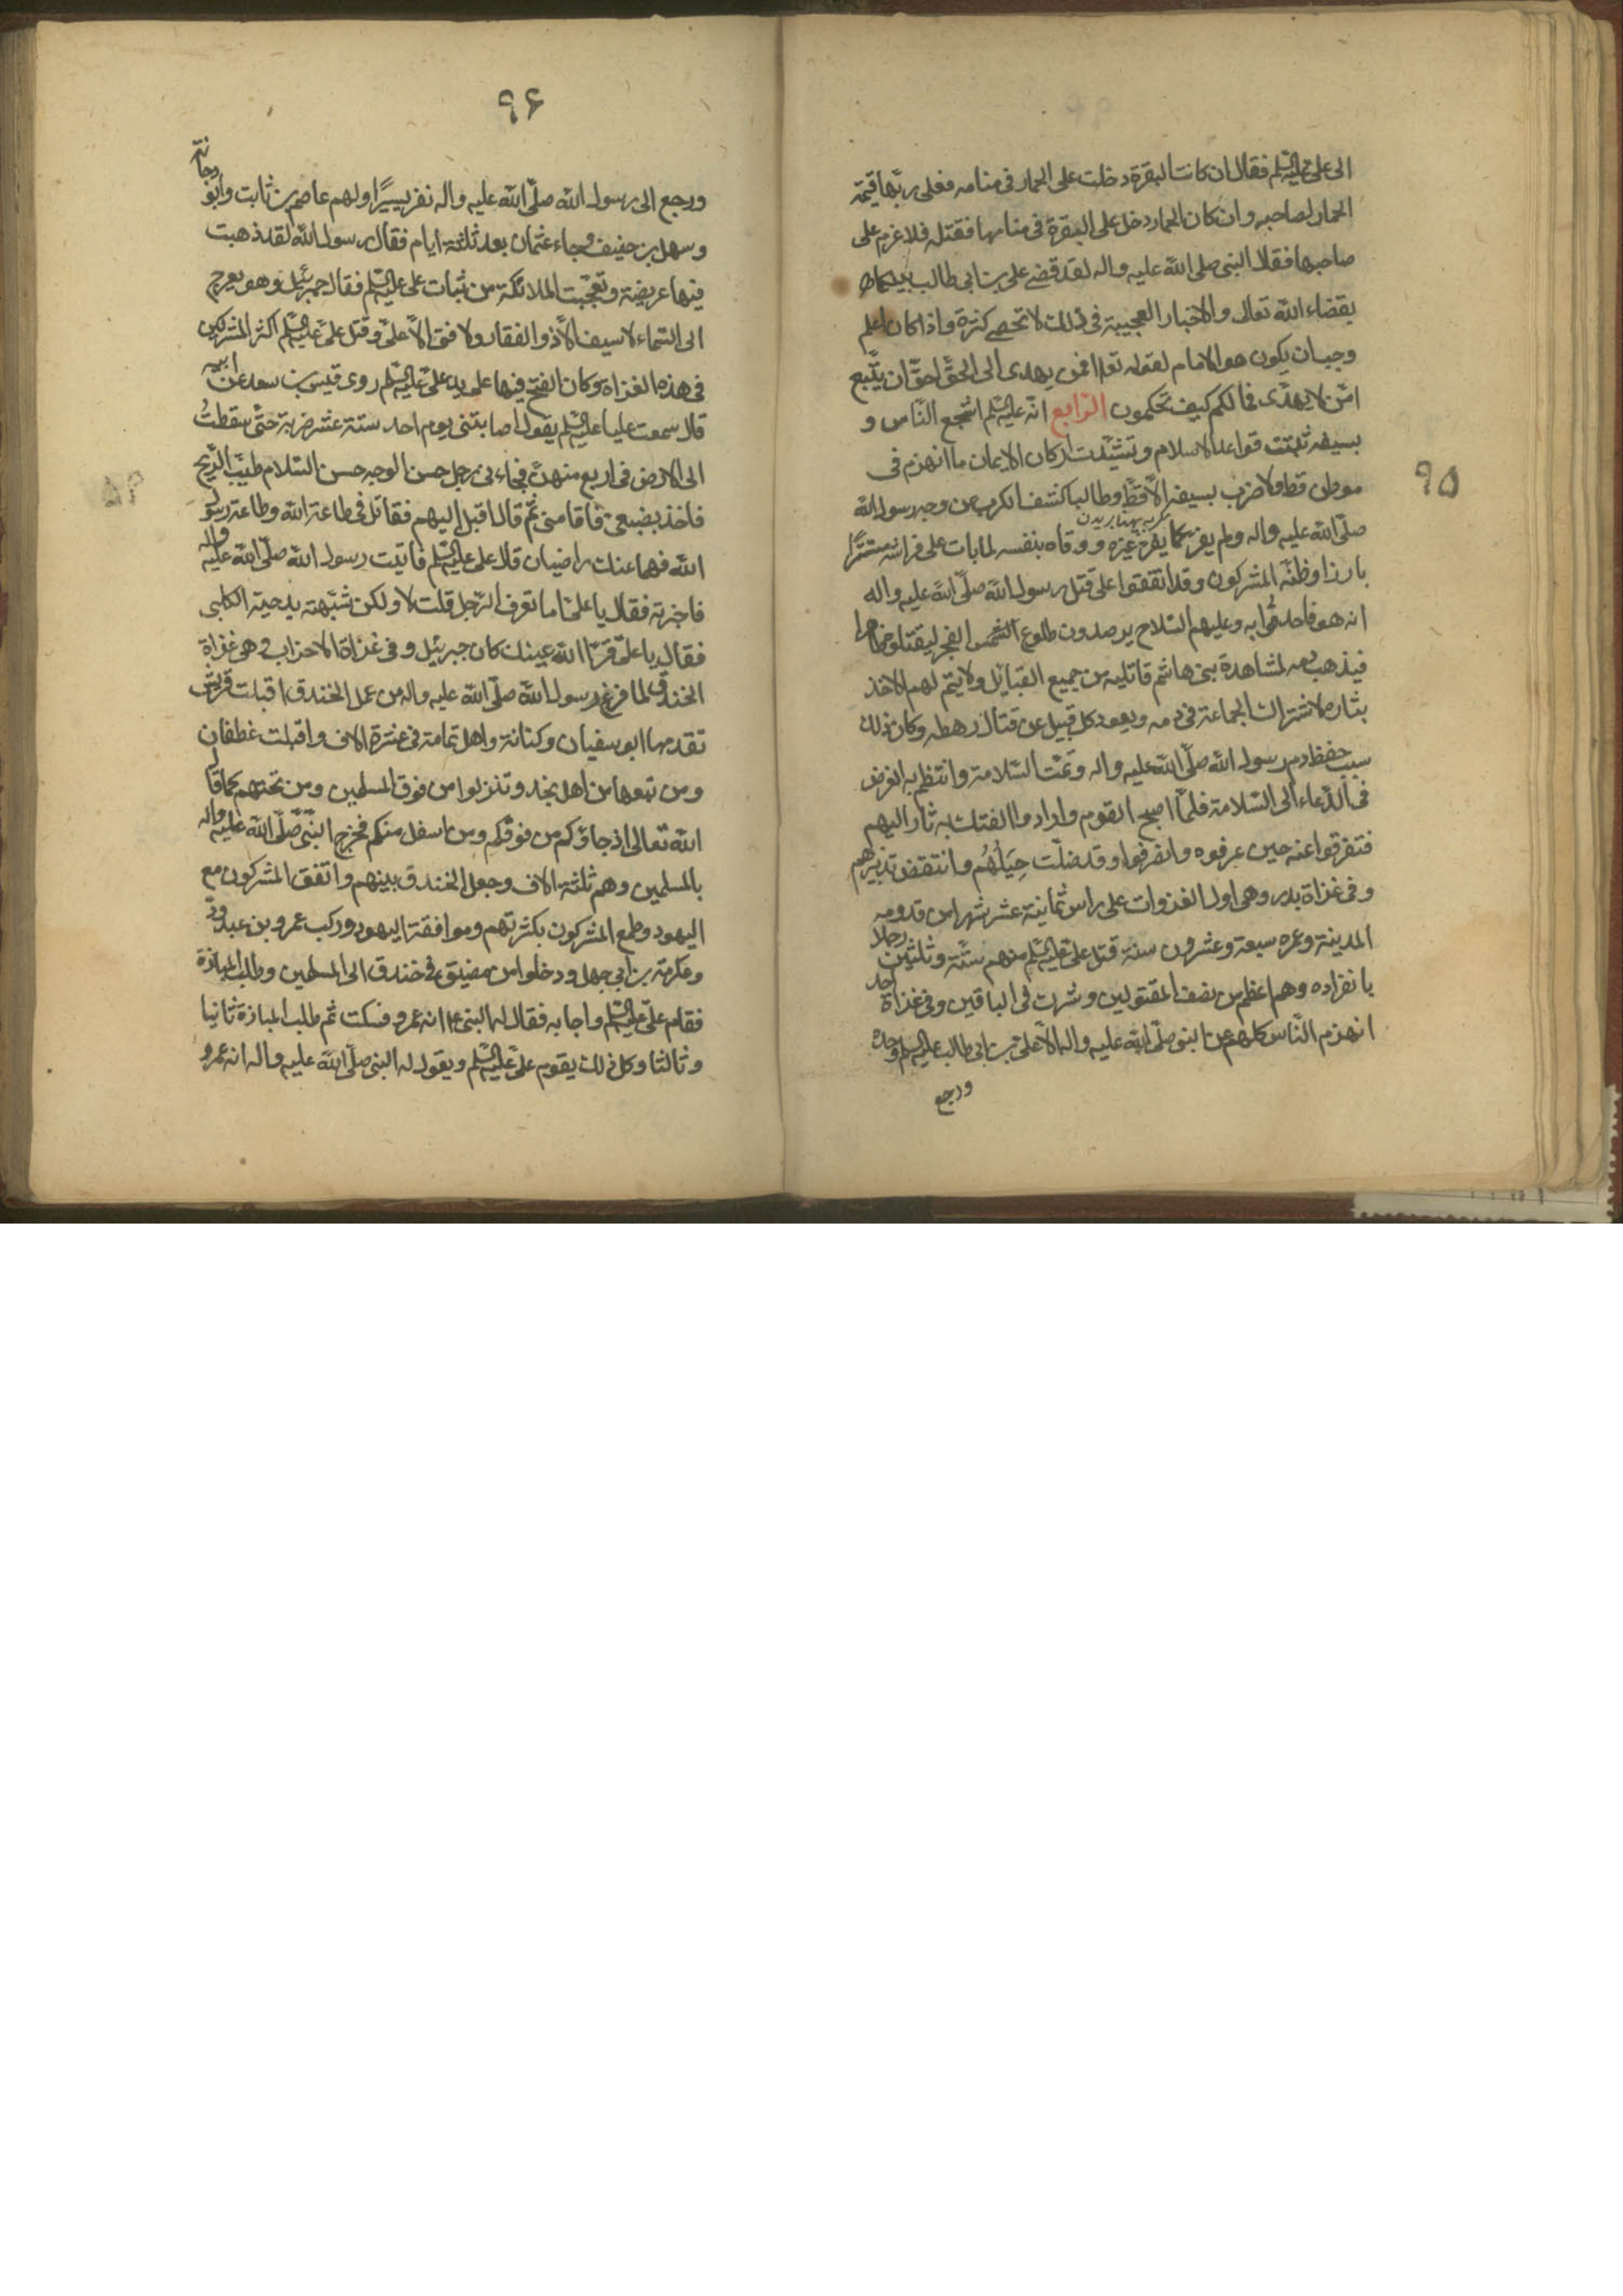 ۹۵
الى على عليه السلم فقال ان كانت البقرة دخلت على الحمار فى منامه فعلى ربها قيمة
الحمار لصاحبه وان كان الحمار دخل على البقرة فى منامها فقتلته فلا غرم على
صاحبها فقال النبى صلى الله عليه واله لقد قضى على بن ابى طالب بينكما
بقضاء الله تعالى والاخبار العجيبة فى ذلك لا تحصى كثرة واذا كان اعلم
وجب ان يكون هو الامام لقوله تعا افمن يهدى الى الحقّ احقّ ان يتّبع
امّن لا يهدّى فما لكم كيف تحكمون الرّابع انّه عليه السّلم اشجع النّاس و
بسيفه ثبتت قواعد الاسلام وتشيّدت اركان الايمان ما انهزم فى
موطن قط ولا ضرب بسيفه الّا قطّ وطالبا كشف الكرب عن وجه رسول الله
صلّى الله عليه واله ولم يفر كما يفرّ غيره ووقاه بنفسه لما بات على فراشه مستترًا
بارزا وظنّه المشركون وقد اتفقوا على قتل رسول الله صلّى الله عليه واله
انه هو فاحدقوا به وعليهم السّلاح يرصدون طلوع الفجر ليقتلوه ظاهرا
فيذهب دمه لمشاهدة بنى هاشم قاتليه من جميع القبايل ولا يتم لهم الاخذ
بثاره لاشتراك الجماعة فى دمه ويعود كل قبيل عن قتال رهطه وكان ذلك
سبب حفظ دم رسول الله صلّى الله عليه واله وتمّت السّلامة وانتظم به الغرض
فى الدّعاء الى السّلامة فلمّا اصبح القوم وارادوا الفتك به ثار اليهم
فتفرقوا عنه حين عرفوه وانصرفوا وقد ضلّت حِيَلُهُم وانتقض تدبيرهم
وفى غزاة بدر وهى اول الغزوات على راس ثمانية عشر شهرا من قدومه
المدينة وعمره سبعة وعشرون سنة قتل علىّ عليه السّلم منهم ستّة وثلثين رجلا
بانفراده وهم اعظم من نصف المقتولين وشرك فى الباقين وفى غزاة احد
انهزم النّاس كلهم عن النبى صلّى الله عليه واله الّا على بن ابى طالب عليه السّلم وحده
ورجع
۹۶
ورجع الى رسول الله صلّى الله عليه واله نفر يسيرًا ولهم عاصم بن ثابت وابو دجانة
وسهل بن حنيف وجاء عثمان بعد ثلثة ايام فقال رسول الله لقد ذهبت
فيها عريضة وتعجّبت الملائكة من ثبات على عليه السّلم فقال جبرئيل وهو يعرج
الى السّماء لا سيف الّا ذو الفقار ولا فتى الّا علىّ وقتل علىّ عليه السّلم اكثر المشركين
فى هذه الغزاة وكان الفتح فيها على يد علىّ عليه السّلم روى قيس بن سعد عن ابيه
قال سمعت عليا عليه السّلم يقول اصابتنى يوم احد ستة عشر ضربة حتّى سقطتُ
الى الارض فى اربع منهنّ فجاءنى رجل حسن الوجه حسن السّلام طيّب الرّيح
فاخذ بضبعى فاقامنى ثم قال اقبل اليهم فقاتل فى طاعة الله وطاعة رسول
الله فهما عنك راضيان قال على عليه السّلم فاتيت رسول الله صلّى الله عليه واله
فاخبرته فقال يا على اما تعرف الرّجل قلت لا ولكن شبّهته بدحية الكلبى
فقال يا علىّ قرّ الله عينك كان جبرئيل وفى غزاة الاحزاب وهى غزاة
الخندق لما فرغ رسول الله صلّى الله عليه واله من عمل الخندق اقبلت قريش
تقدمها ابو سفيان وكنانة واهل تهامة فى عشرة الاف واقبلت غطفان
ومن تبعها من اهل نجد ونزلوا من فوق المسلمين ومن تحتهم كما قال
الله تعالى اذ جاؤكم من فوقكم ومن اسفل منكم فخرج النّبىّ صلّى الله عليه واله
بالمسلمين وهم ثلثة الاف وجعل الخندق بينهم واتفق المشركون مع
اليهود وطمع المشركون بكثرتهم وموافقة اليهود وركب عمرو بن عبد ودّ
وعكرمة بن ابى جهل ودخلوا من مضيق فى خندق الى المسلمين وطلب المبارزة
فقام علىّ عليه السّلم واجابه فقال له النبى انه عمرو فسكت ثم طلب المبارزة ثانيا
وثالثا وكل ذلك يقوم علىّ عليه السّلم ويقول له النبى صلّى الله عليه واله انه عمرو